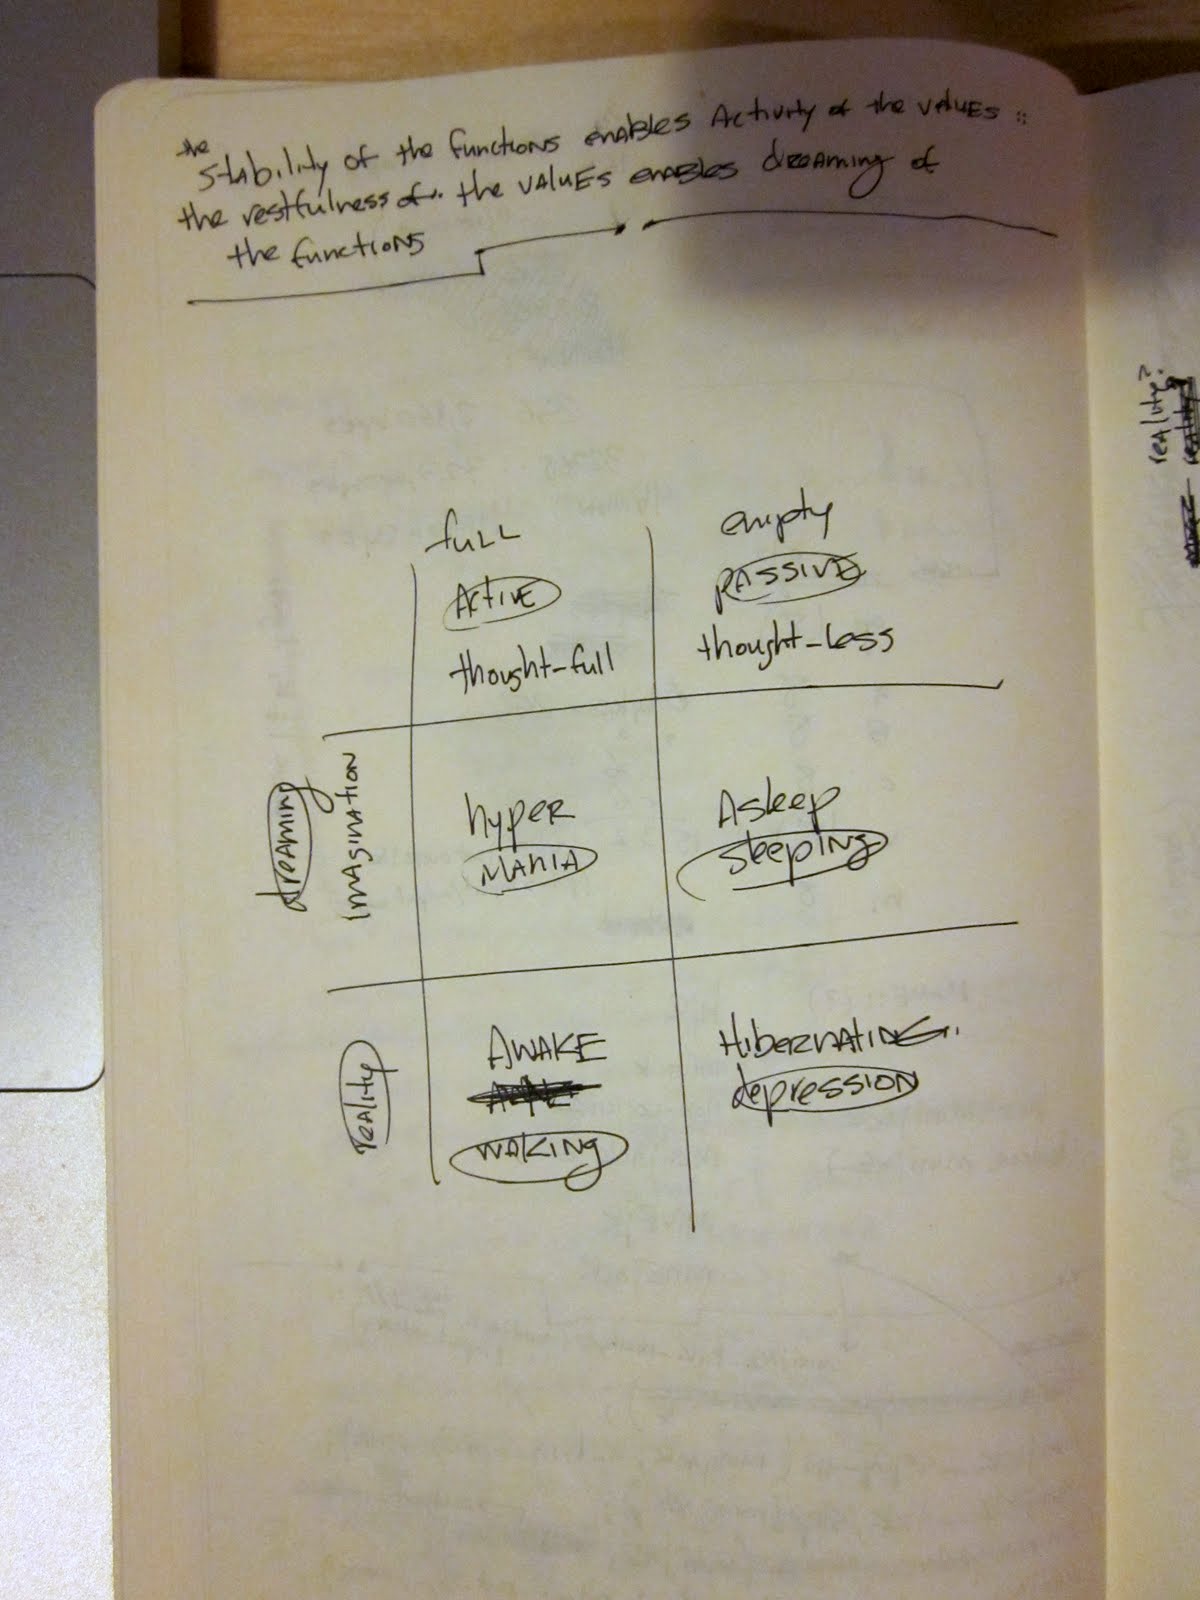 the
Stability of the functions enables Activity of the values ::
the restfulness of the values enables dreaming of
the functions
full
empty
Active
PASSIVE
thought-full
thought-less
dreaming
IMAGINATION
hyper
MANIA
Asleep
sleeping
reality
AWAKE
WAKING
HIBERNATING..
depression
reality?
reality